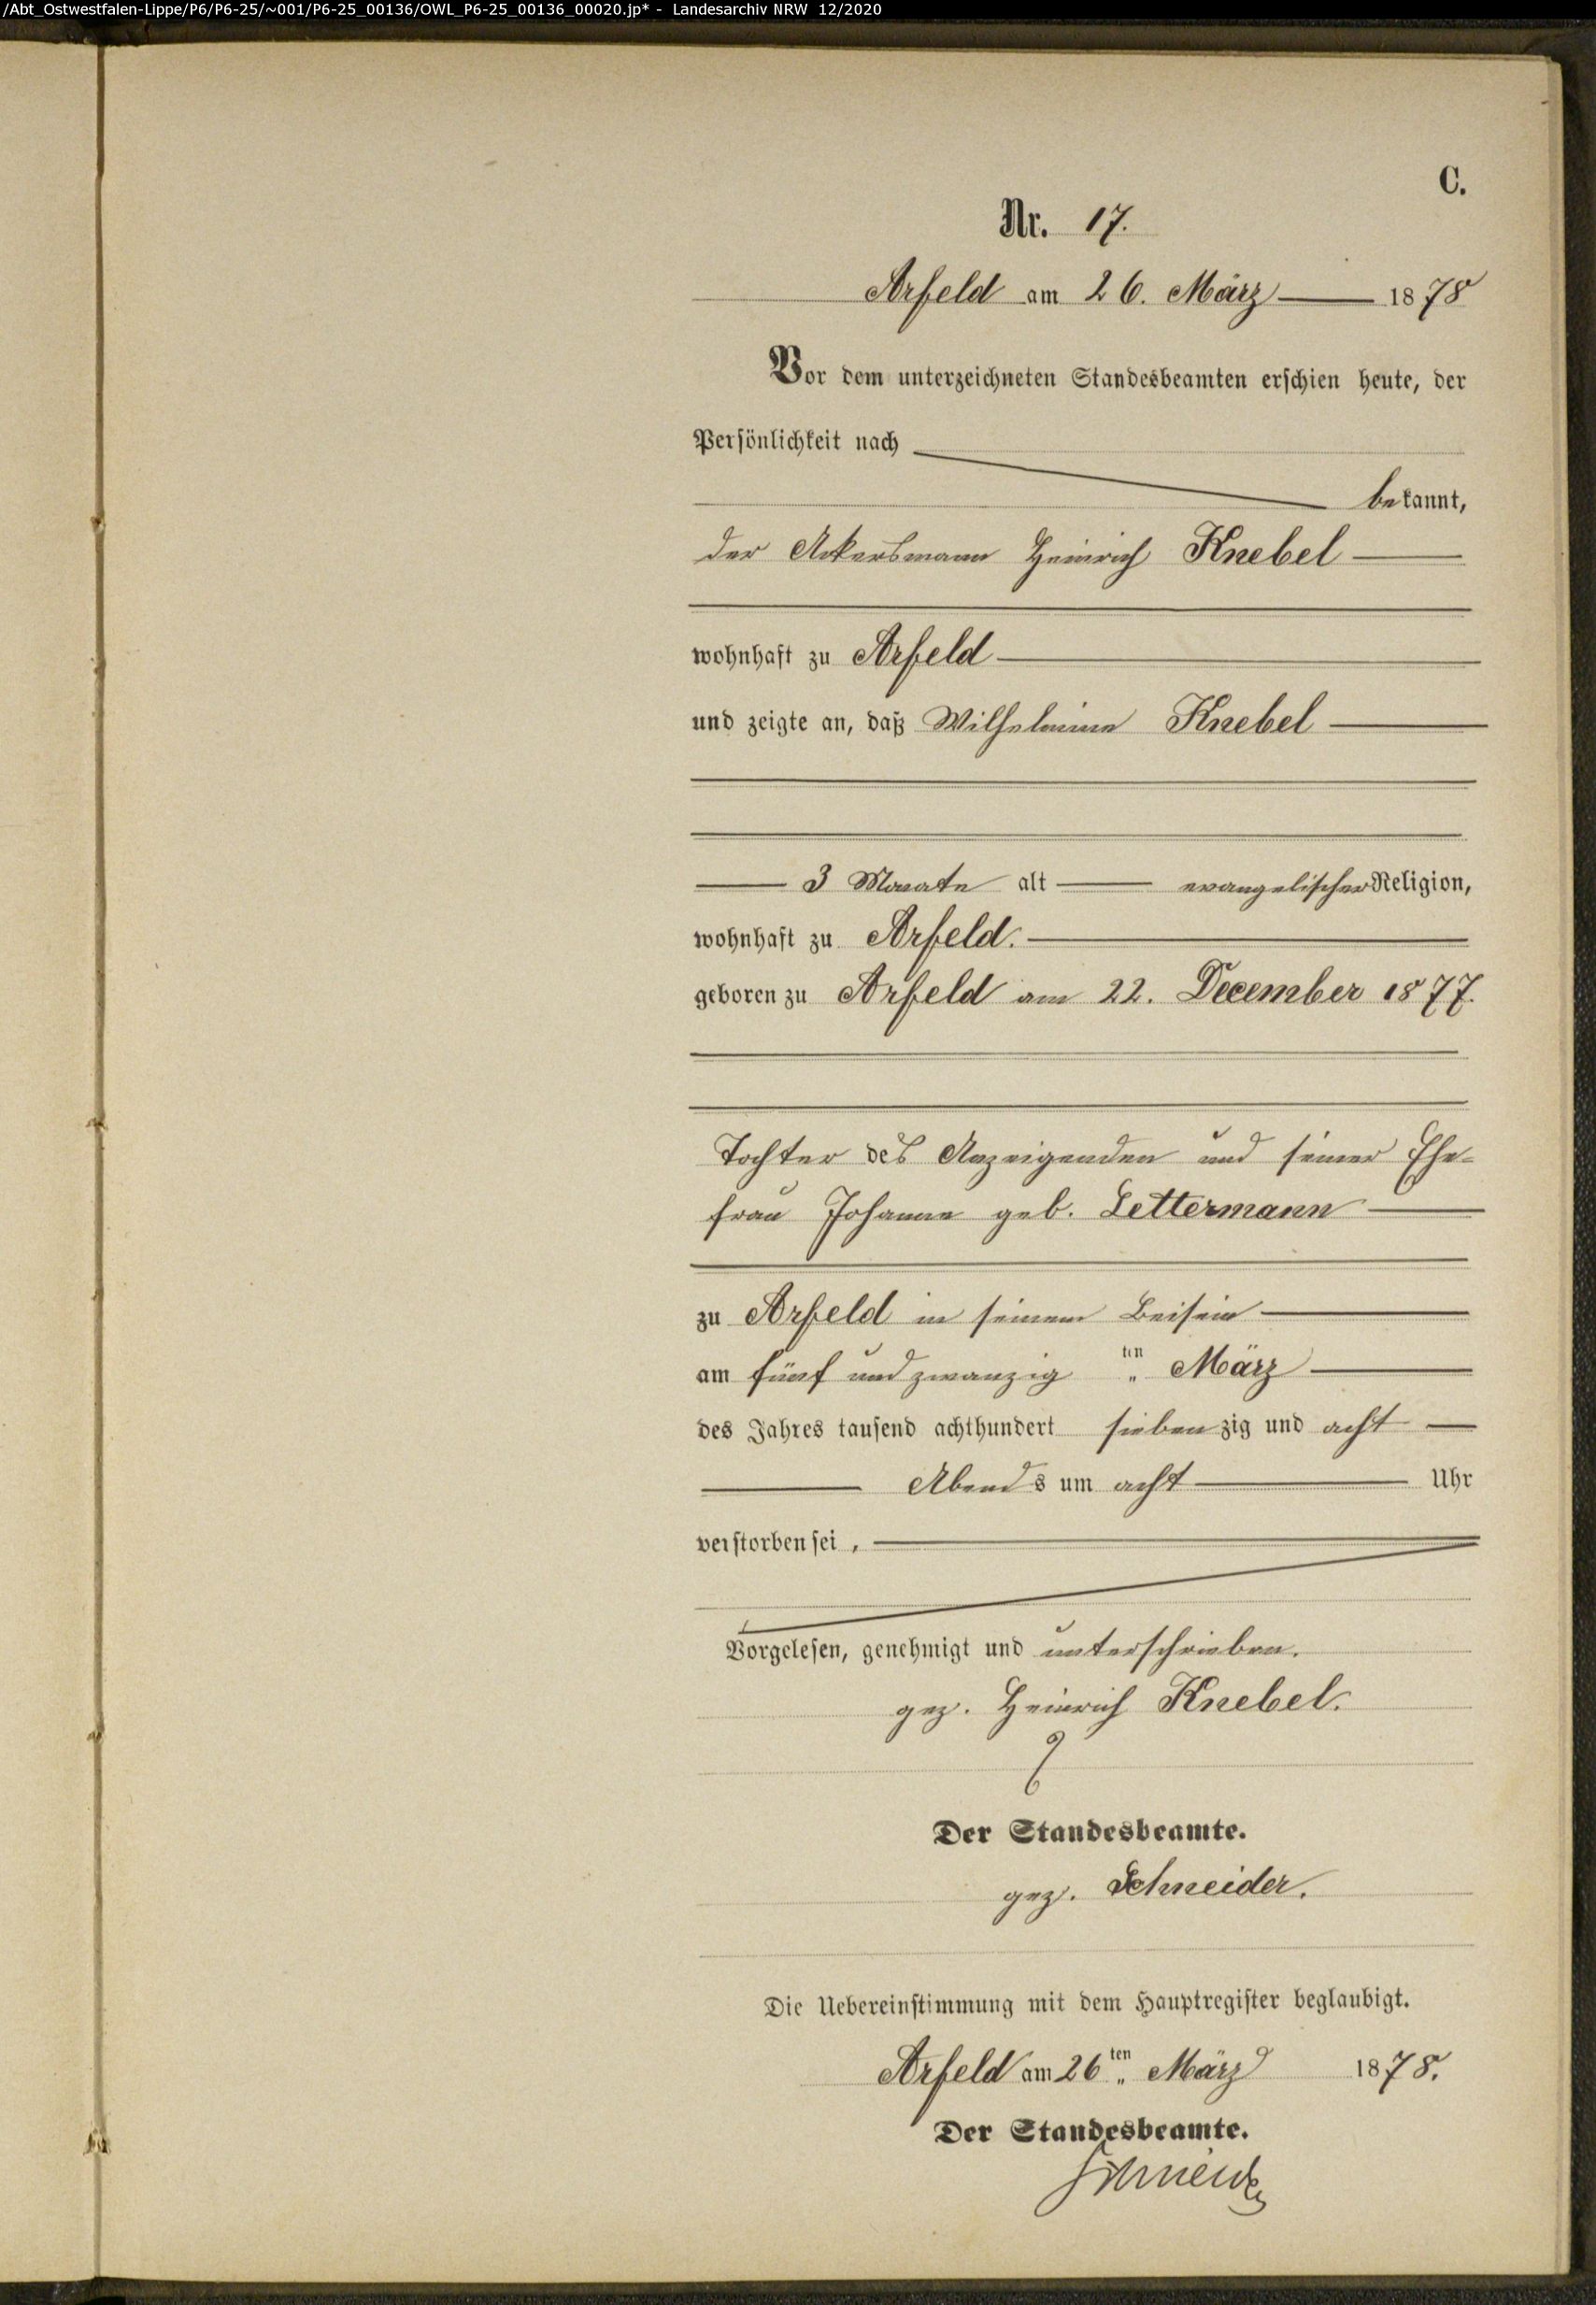 /Abt_Ostwestfalen-Lippe/P6/P6-25/~001/P6-25_00136/OWL_P6-25_00136_00020.jp* - Landesarchiv NRW 12/2020
C.
Nr. 17.
Arfeld am 26. März 1878
Vor dem unterzeichneten Standesbeamten erschien heute, der
Persönlichkeit nach
bekannt,
der Ackersmann Heinrich Knebel
wohnhaft zu Arfeld
und zeigte an, daß Wilhelmine Knebel
3 Monate alt evangelischer Religion,
wohnhaft zu Arfeld.
geboren zu Arfeld am 22. December 1877.
Tochter des Anzeigenden und seiner Ehe-
frau Johanne geb. Lettermann
zu Arfeld in seinem Beisein
am fünf und zwanzig ten März
des Jahres tausend achthundert siebenzig und acht
Abends um acht Uhr
verstorben sei,
Vorgelesen, genehmigt und unterschrieben.
gez. Heinrich Knebel.
Der Standesbeamte.
gez. Schneider.
Die Uebereinstimmung mit dem Hauptregister beglaubigt.
Arfeld am 26ten März 1878.
Der Standesbeamte.
Schneider